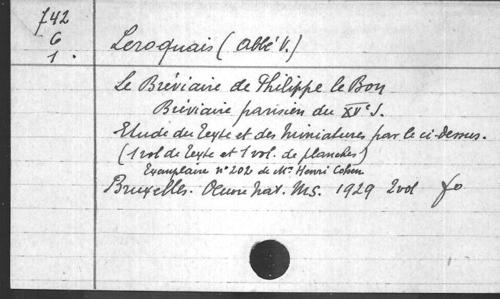 742
G
1.
Leroquais (Abbé V.)
Le Bréviaire de Philippe le Bon
Bréviaire parisien du XVe S.
Etude du Texte et des Miniatures par le ci-Dessus.
(1 vol de Texte et 1 vol. de planches)
Exemplaire n° 202 de Mr Henri Cohen
Bruxelles. Oeuvre Nat. Ms. 1929 2 vol fo